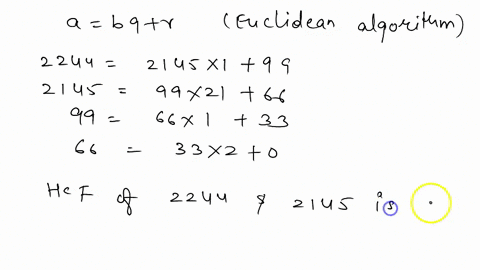 a = bq+r (Euclidean algorithm)
2244 = 2145×1 + 99
2145 = 99×21 + 66
99 = 66×1 + 33
66 = 33×2+0
HCF of 2244 & 2145 is